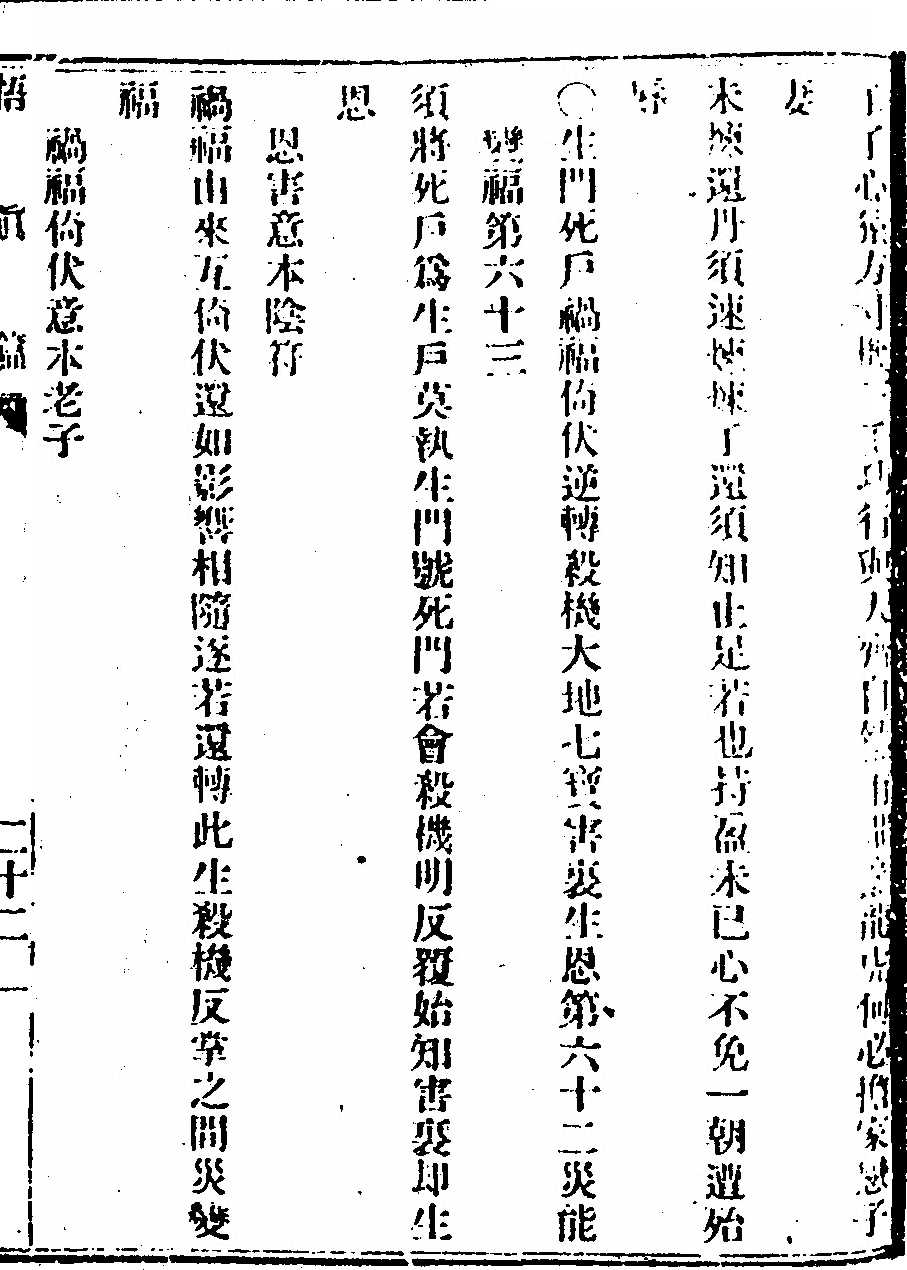 了心猿方寸機三千功行與人齊自有龍虎何必擔家戀子
妻
未煉還丹須速煉煉了還須知止足若也持盈未已心不免一朝遭殆
辱
〇生門死戶禍福倚伏逆轉殺機大地七寶害裏生恩第六十二災能
變福第六十三
須將死戶為生戶莫執生門號死門若會殺機明反覆始知害裏却生
恩
恩害意本陰符
禍福由來互倚伏還如影響相隨逐若還轉此生殺機反掌之間災變
福
禍福倚伏意本老子
悟 眞 篇 二十二